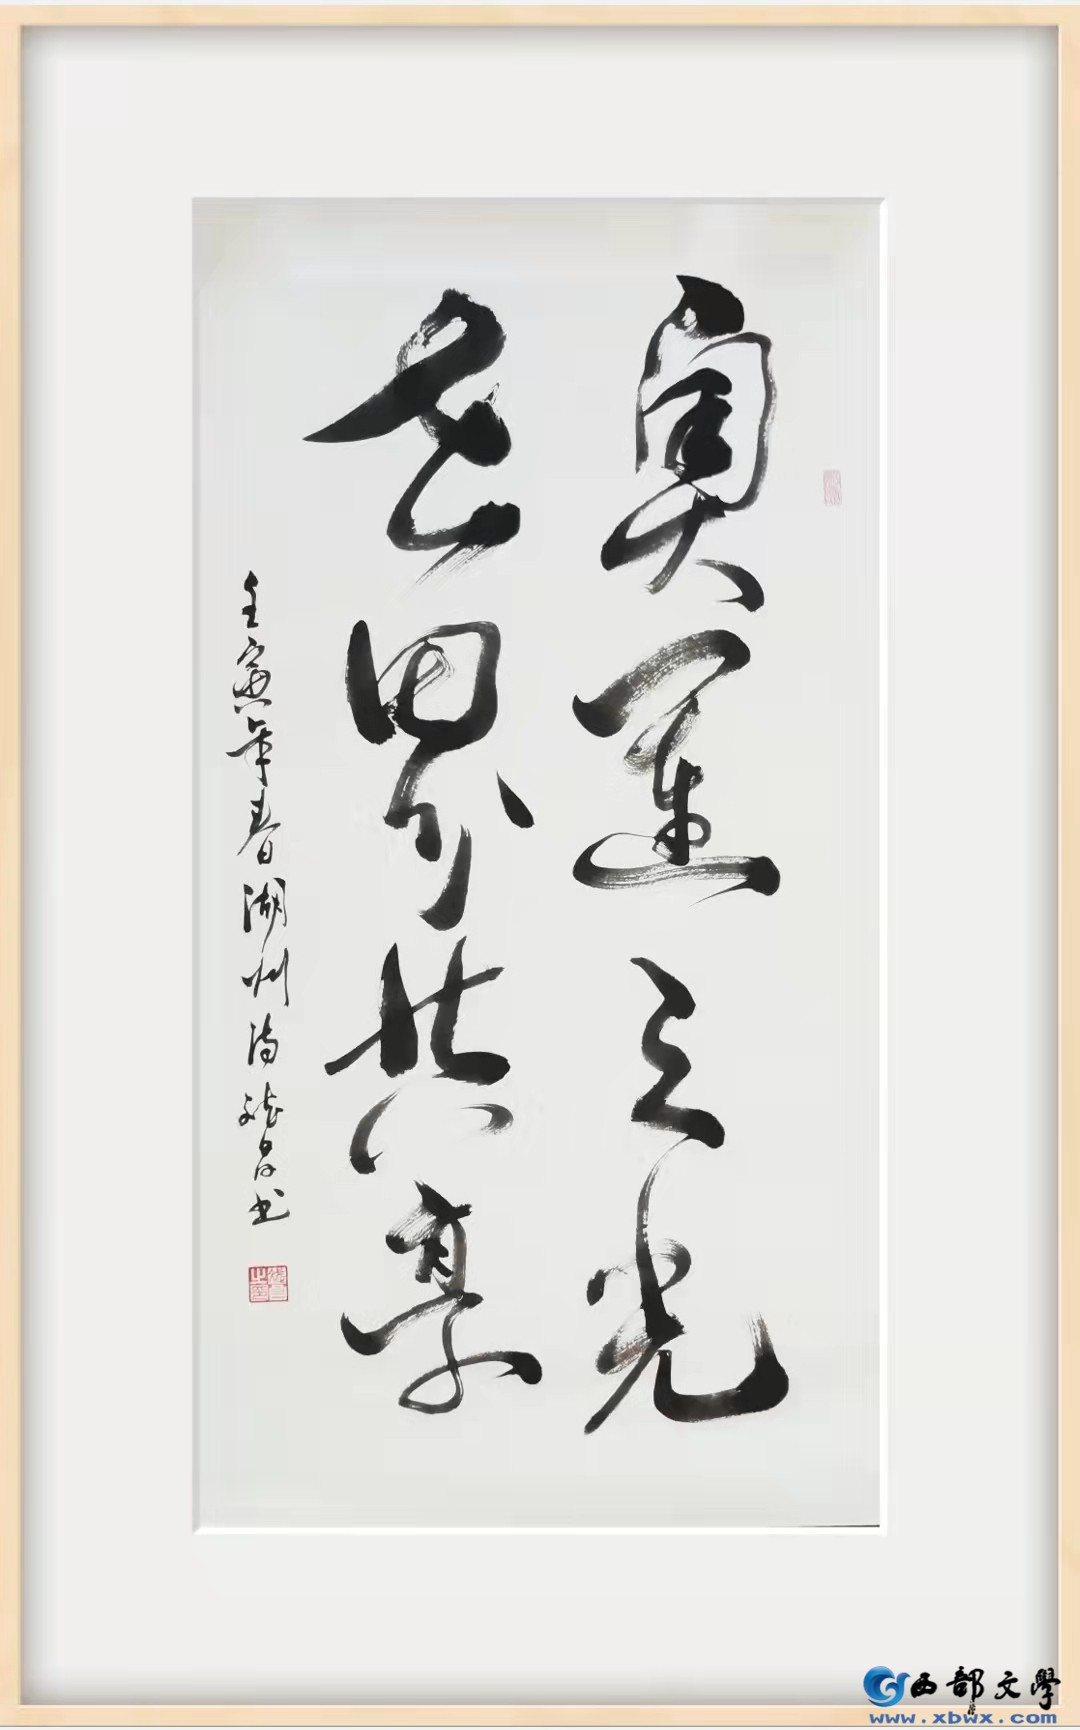 奥運之光
世界共享
壬寅年春湖州沈德昌书
西部文學
www.xbwx.com